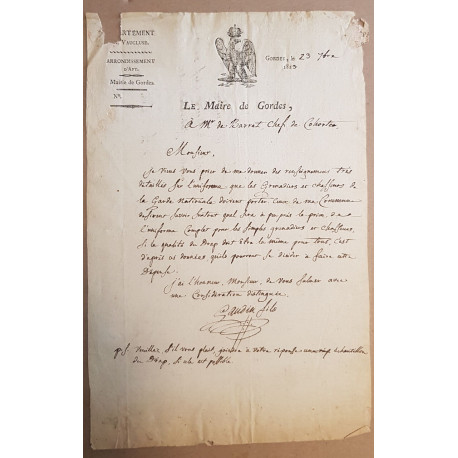 ARTEMENT
VAUCLUSE.
ARRONDISSEMENT
D'APT.
Mairie de Gordes
N.º
Gordes, le 23 7bre
LE Maire de Gordes,
A Mr de Barret Chef de Cohorte.
Monsieur,
Je viens vous prier de me donner des renseignemens très
détaillés sur l'uniforme que les Grenadiers et chasseurs de
la Garde Nationale doivent porter. Ceux de ma Commune
désirent savoir surtout quel sera à peu près le prix de
l'uniforme Complet pour les simples grenadiers et chasseurs,
Si la qualité du Drap doit être la même pour tous, C'est
d'après ces données qu'ils pourront se décider à faire cette
Dépense.
J'ai l'honneur, Monsieur, de vous saluer avec
une Considération distinguée.
fils
p.s. Veuillez, s'il vous plait, joindre à votre réponse échantillon
du Drap, si cela est possible.